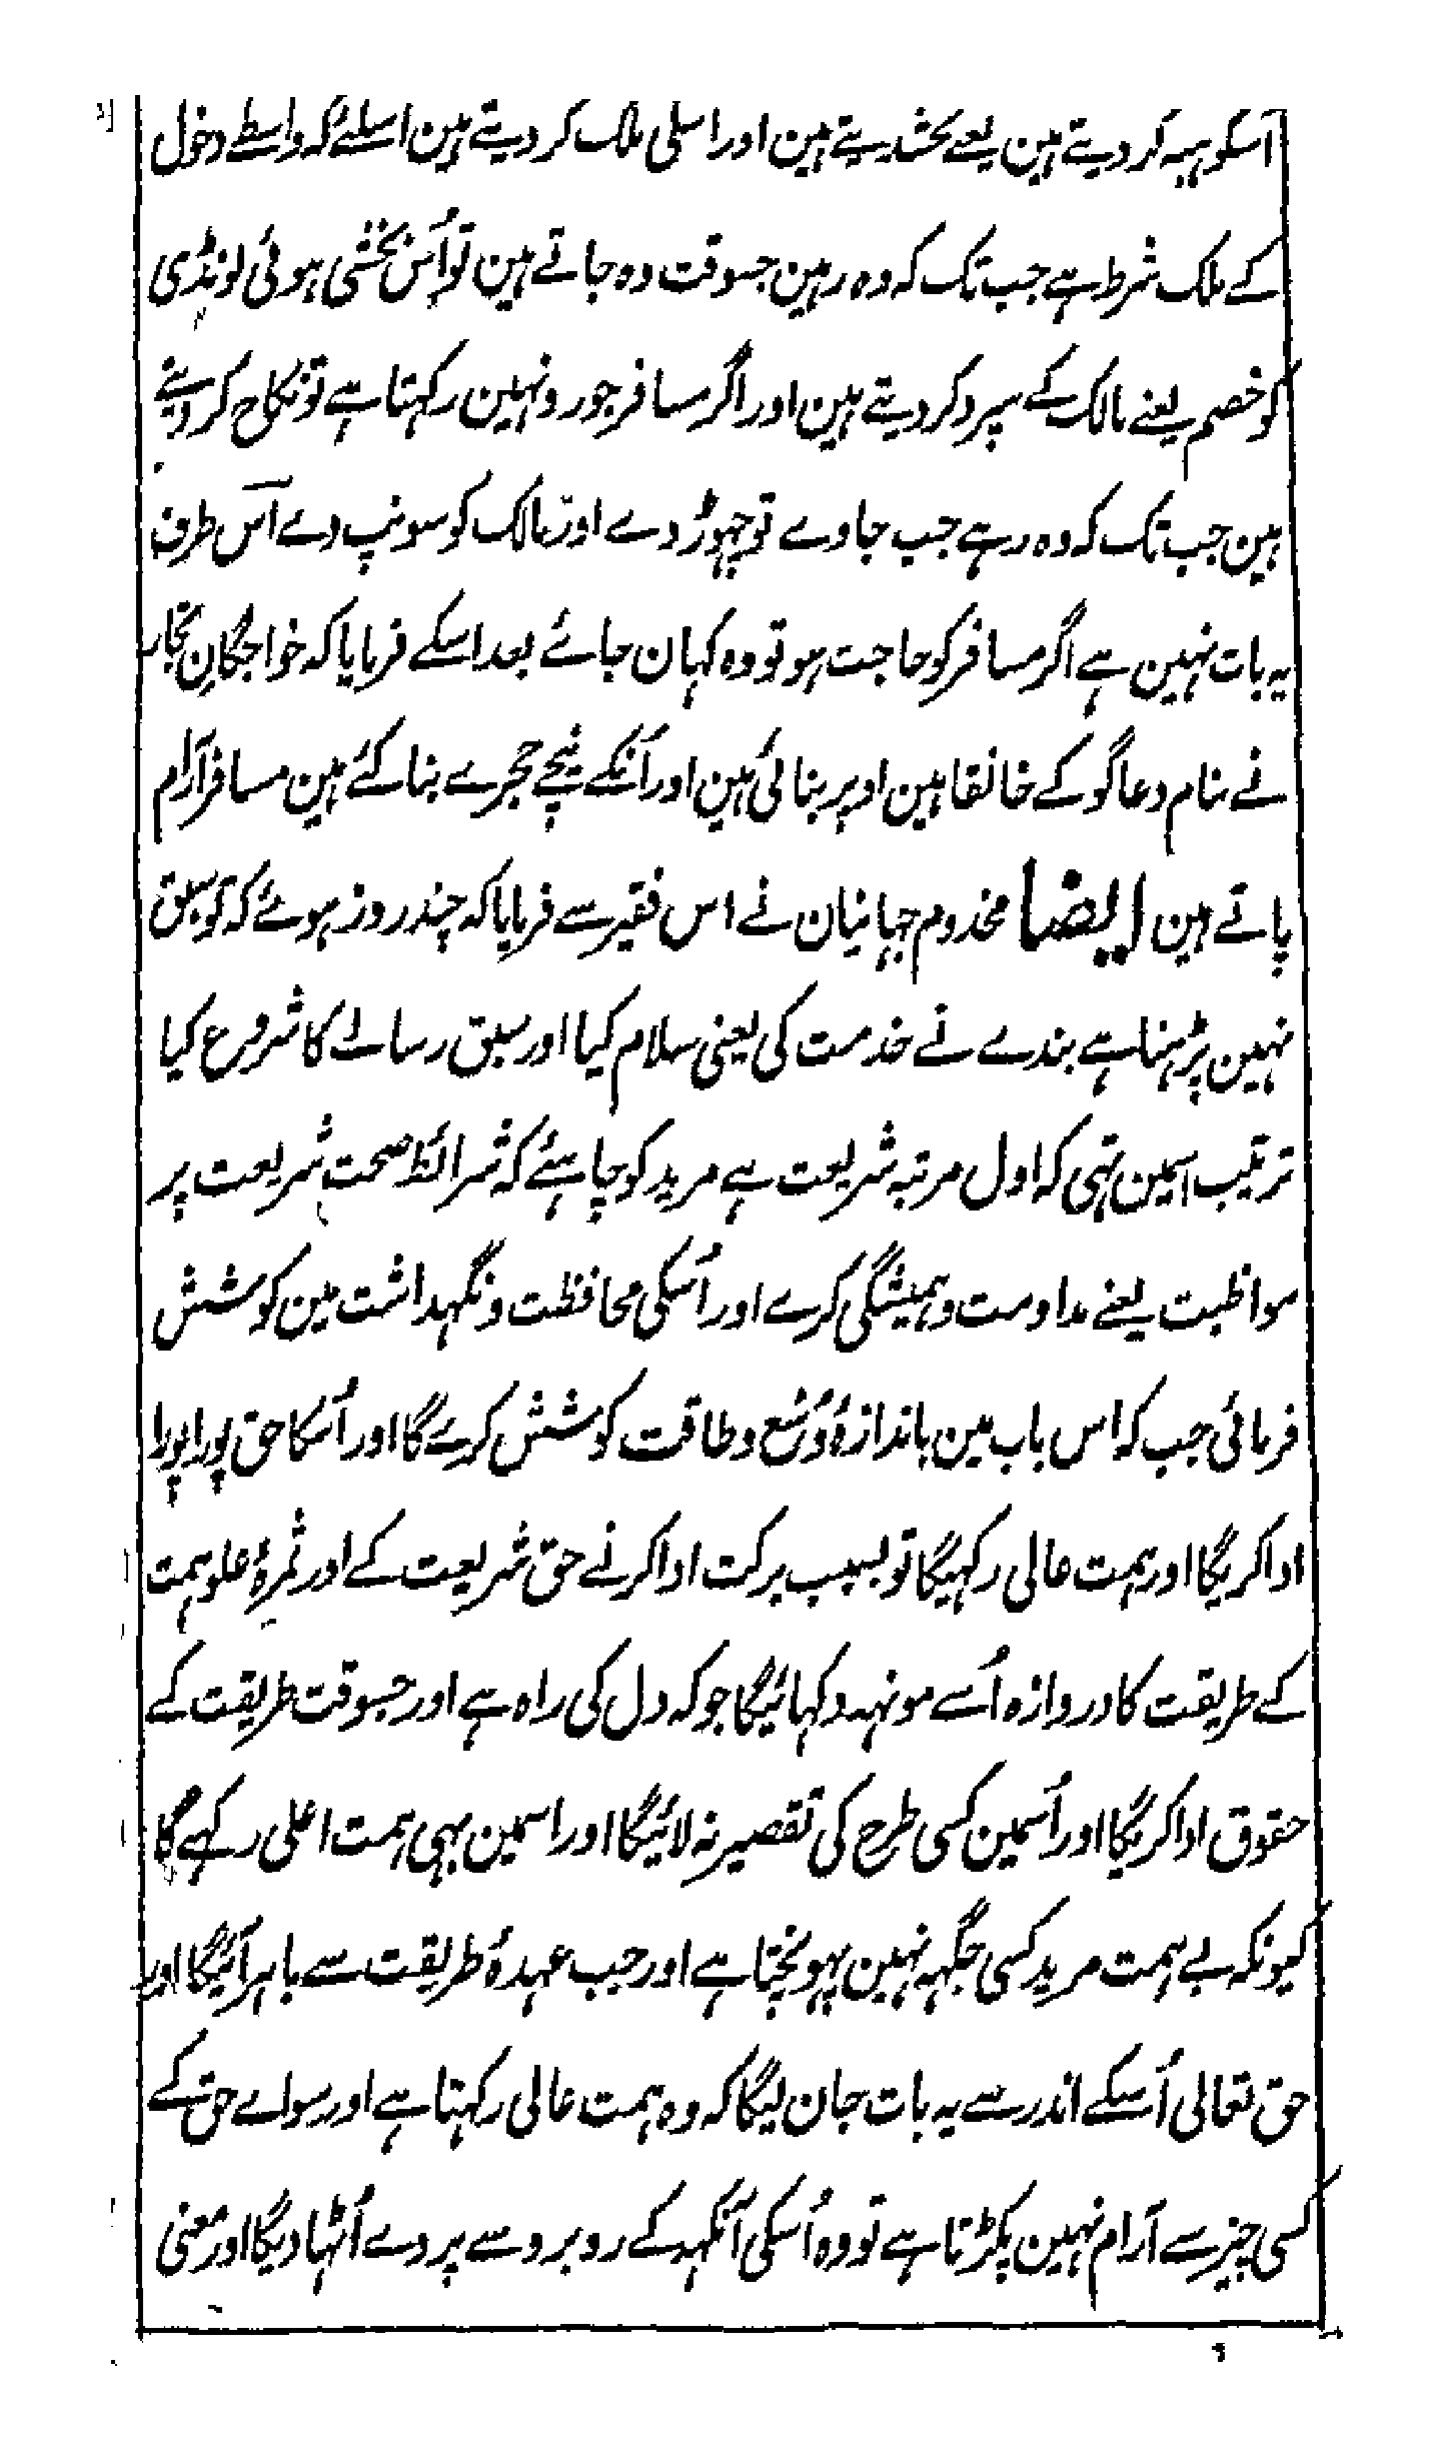 اسکو ہبہ کر دیتے ہین یعنے بخشدیتے ہین اور اسکی ملک کر دیتے ہین اسلئے کہ واسطے دخول
کے ملک شرط ہے جب تک کہ وہ رہین جسوقت وہ جاتے ہین تو اُس بخشی ہوئی لونڈی
کو خصم یعنے مالک کے سپرد کر دیتے ہین اور اگر مسافر جورو نہین رکہتا ہے تو نکاح کر دیتے
ہین جب تک کہ وہ رہے جب جاوے تو چہوڑ دے اور مالک کو سونپ دے اس طرف
یہ بات نہین ہے اگر مسافر کو حاجت ہو تو وہ کہان جائے بعد اسکے فرمایا کہ خواجگانِ تجار
نے بنام دعاگو کے خانقاہین اوپر بنائی ہین اور اُنکے نیچے حجرے بنا کئے ہین مسافر آرام
پاتے ہین ایضا مخدوم جہانیان نے اس فقیر سے فرمایا کہ چند روز ہوئے کہ تو سبق
نہین پڑہتا ہے بندے نے خدمت کی یعنی سلام کیا اور سبق رسالے کا شروع کیا
ترتیب اسمین تہی کہ اول مرتبہ شریعت ہے مرید کو چاہئے کہ شرائط صحت شریعت پر
مواظبت یعنے مداومت وہمیشگی کرے اور اُسکی محافظت ونگہداشت مین کوشش
فرمائی جب کہ اس باب مین باندازۂ وُسْع وطاقت کوشش کرے گا اور اُسکا حق پورا پورا
ادا کریگا اور ہمت عالی رکہیگا تو بسبب برکت ادا کرنے حق شریعت کے اور ثمرۂ علو ہمت
کے طریقت کا دروازہ اُسے مونہہ دکہائیگا جو کہ دل کی راہ ہے اور جسوقت طریقت کے
حقوق ادا کریگا اور اُسمین کسی طرح کی تقصیر نہ لائیگا اور اسمین بہی ہمت اعلی رکہے گا
کیونکہ بے ہمت مرید کسی جگہہ نہین پہونچتا ہے اور جب عہدۂ طریقت سے باہر آئیگا اور
حق تعالی اُسکے اندر سے یہ بات جان لیگا کہ وہ ہمت عالی رکہتا ہے اور سواے حق کے
کسی چیز سے آرام نہین پکڑتا ہے تو وہ اُسکی آنکہہ کے روبرو سے پردے اُٹہا دیگا اور معنی